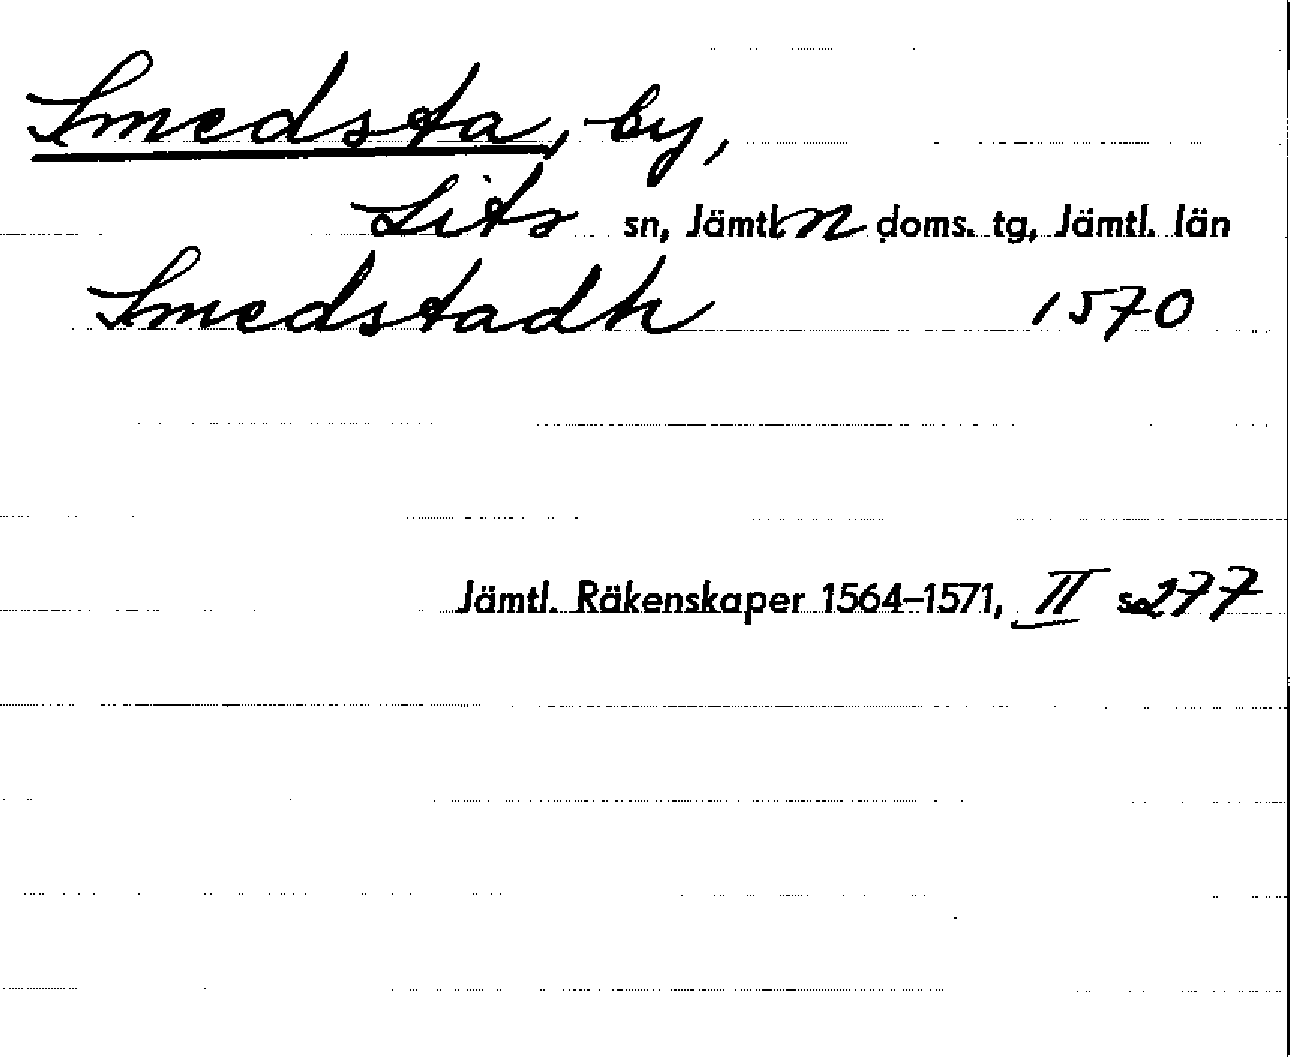 Smedsta, by,
Lits sn, Jämtl. n doms. tg, Jämtl. län
Smedstadh 1570
Jämtl. Räkenskaper 1564–1571, II s. 277